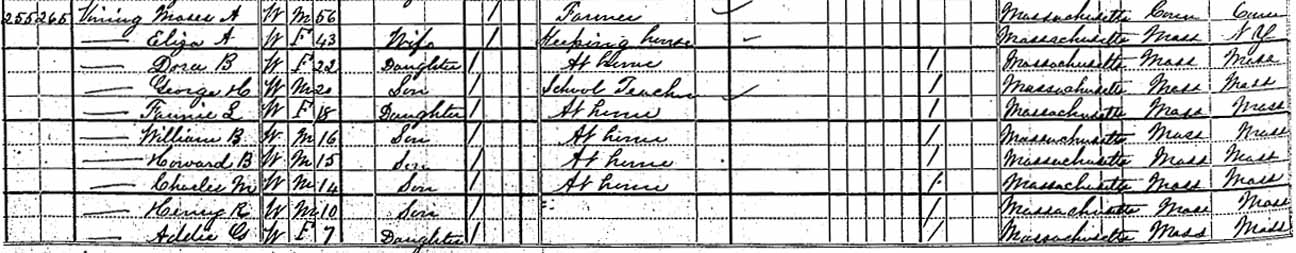 255 265 Vining Moses A W M 56 / Farmer Massachusetts Conn Conn
— Eliza A W F 43 Wife / Keeping house Massachusetts Mass N Y
— Dora B W F 22 Daughter / At home / Massachusetts Mass Mass
— George H W M 20 Son / School Teacher / Massachusetts Mass Mass
— Fannie L W F 18 Daughter / At home / Massachusetts Mass Mass
— William B W M 16 Son / At home / Massachusetts Mass Mass
— Howard B W M 15 Son / At home / Massachusetts Mass Mass
— Charles M W M 14 Son / At home / Massachusetts Mass Mass
— Henry R W M 10 Son / / Massachusetts Mass Mass
— Addie G W F 7 Daughter / / Massachusetts Mass Mass